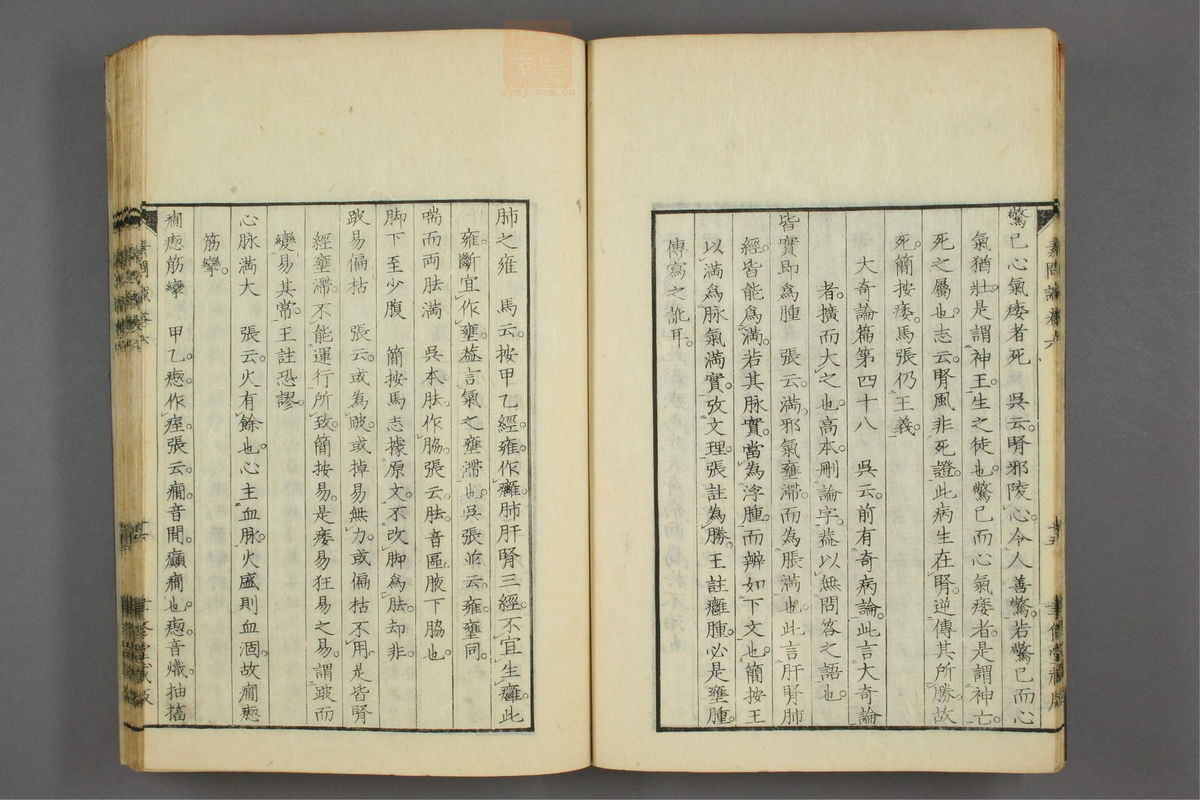 驚已心氣痿者死　吳云腎邪陵心令人善驚若驚已而心
氣猶壯是謂神王生之徒也驚已而心氣痿者是謂神亡
死之屬也志云腎風非死證此病生在腎逆傳其所勝故
死簡按痿馬張仍王義
大奇論篇第四十八　吳云前有奇病論此言大奇論
者擴而大之也高本刪論字蓋以無問答之語也
皆實卽爲腫　張云滿邪氣壅滯而爲脹滿也此言肝腎肺
經皆能爲滿若其脉實當爲浮腫而辨如下文也簡按王
以滿爲脉氣滿實攷文理張註爲勝王註癰腫必是壅腫
傳寫之訛耳
肺之雍　馬云按甲乙經雍作癰肺肝腎三經不宜生癰此
雍斷宜作壅蓋言氣之壅滯也吳張並云雍壅同
喘而両胠滿　吳本胠作脇張云胠音區腋下脇也
脚下至少腹　簡按馬志據原文不改脚爲胠却非
跛易偏枯　張云或爲跛或掉易無力或偏枯不用是皆腎
經壅滯不能運行所致簡按易是痿易狂易之易謂跛而
變易其常王註恐謬
心脉滿大　張云火有餘也心主血脉火盛則血涸故癇瘛
筋攣
癇瘛筋攣　甲乙瘛作痓張云癇音閒癲癇也瘛音熾抽搐